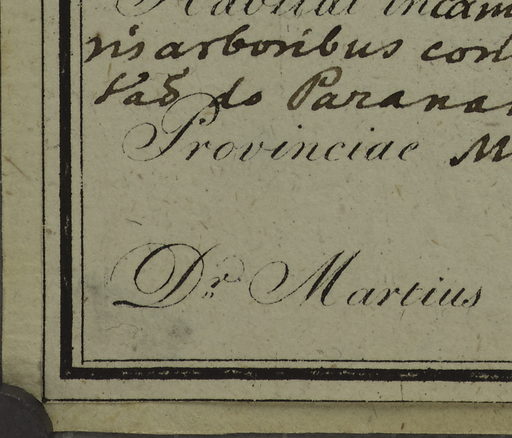 Habitat in cam
ris arboribus con
Vaõ do Parana
Provinciae M
Dr. Martius